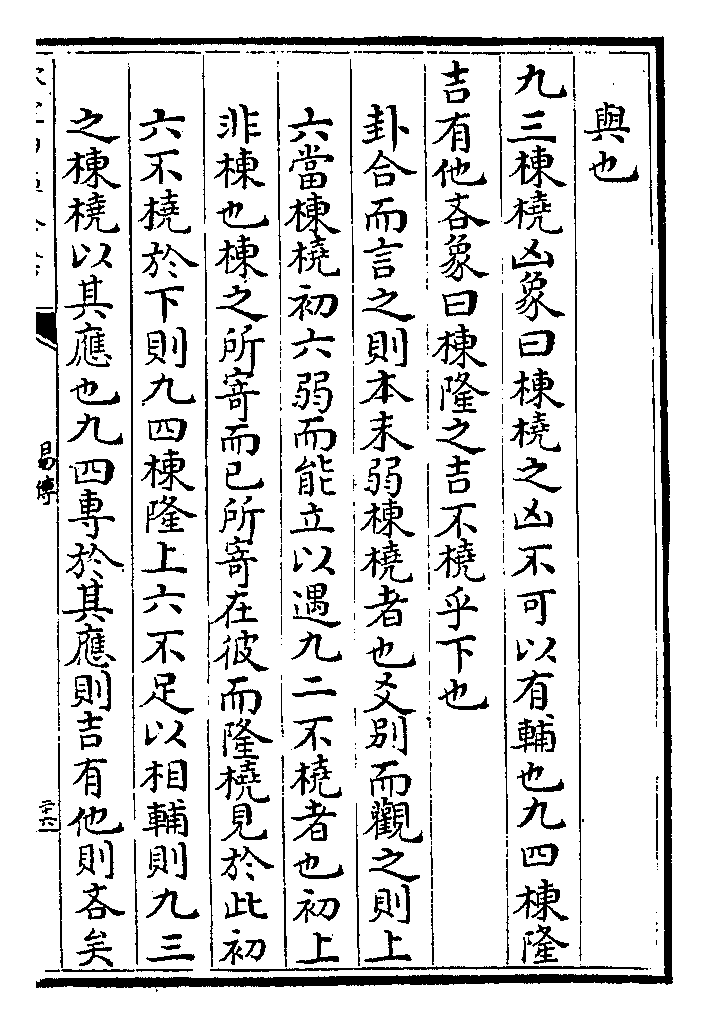 與也
九三棟橈凶象曰棟橈之凶不可以有輔也九四棟隆
吉有他吝象曰棟隆之吉不橈乎下也
卦合而言之則本末弱棟橈者也爻别而觀之則上
六當棟橈初六弱而能立以遇九二不橈者也初上
非棟也棟之所寄而已所寄在彼而隆橈見於此初
六不橈於下則九四棟隆上六不足以相輔則九三
之棟橈以其應也九四專於其應則吉有他則吝矣
易傳
二十六